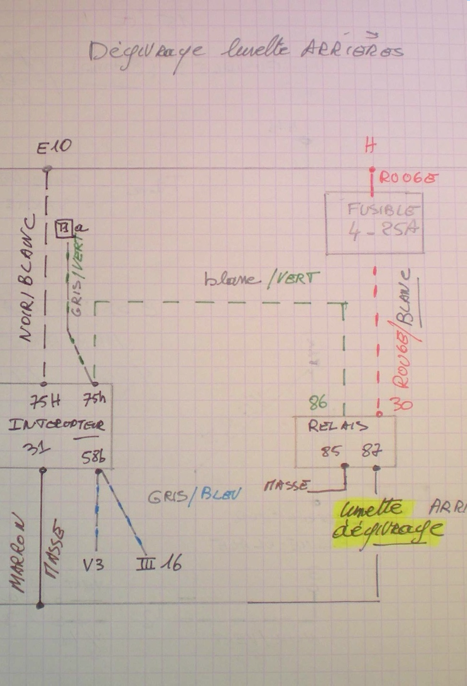 Dégivrage lunette ARRIÈRES
E10
H
ROUGE
FUSIBLE
4-25A
NOIR/BLANC
GRIS/VERT
blanc/VERT
ROUGE/BLANC
75H
75h
86
30
INTERUPTEUR
RELAIS
31
58b
85
87
GRIS/BLEU
MASSE
lunette ARRI
dégivrage
MARRON
MASSE
V3
III 16